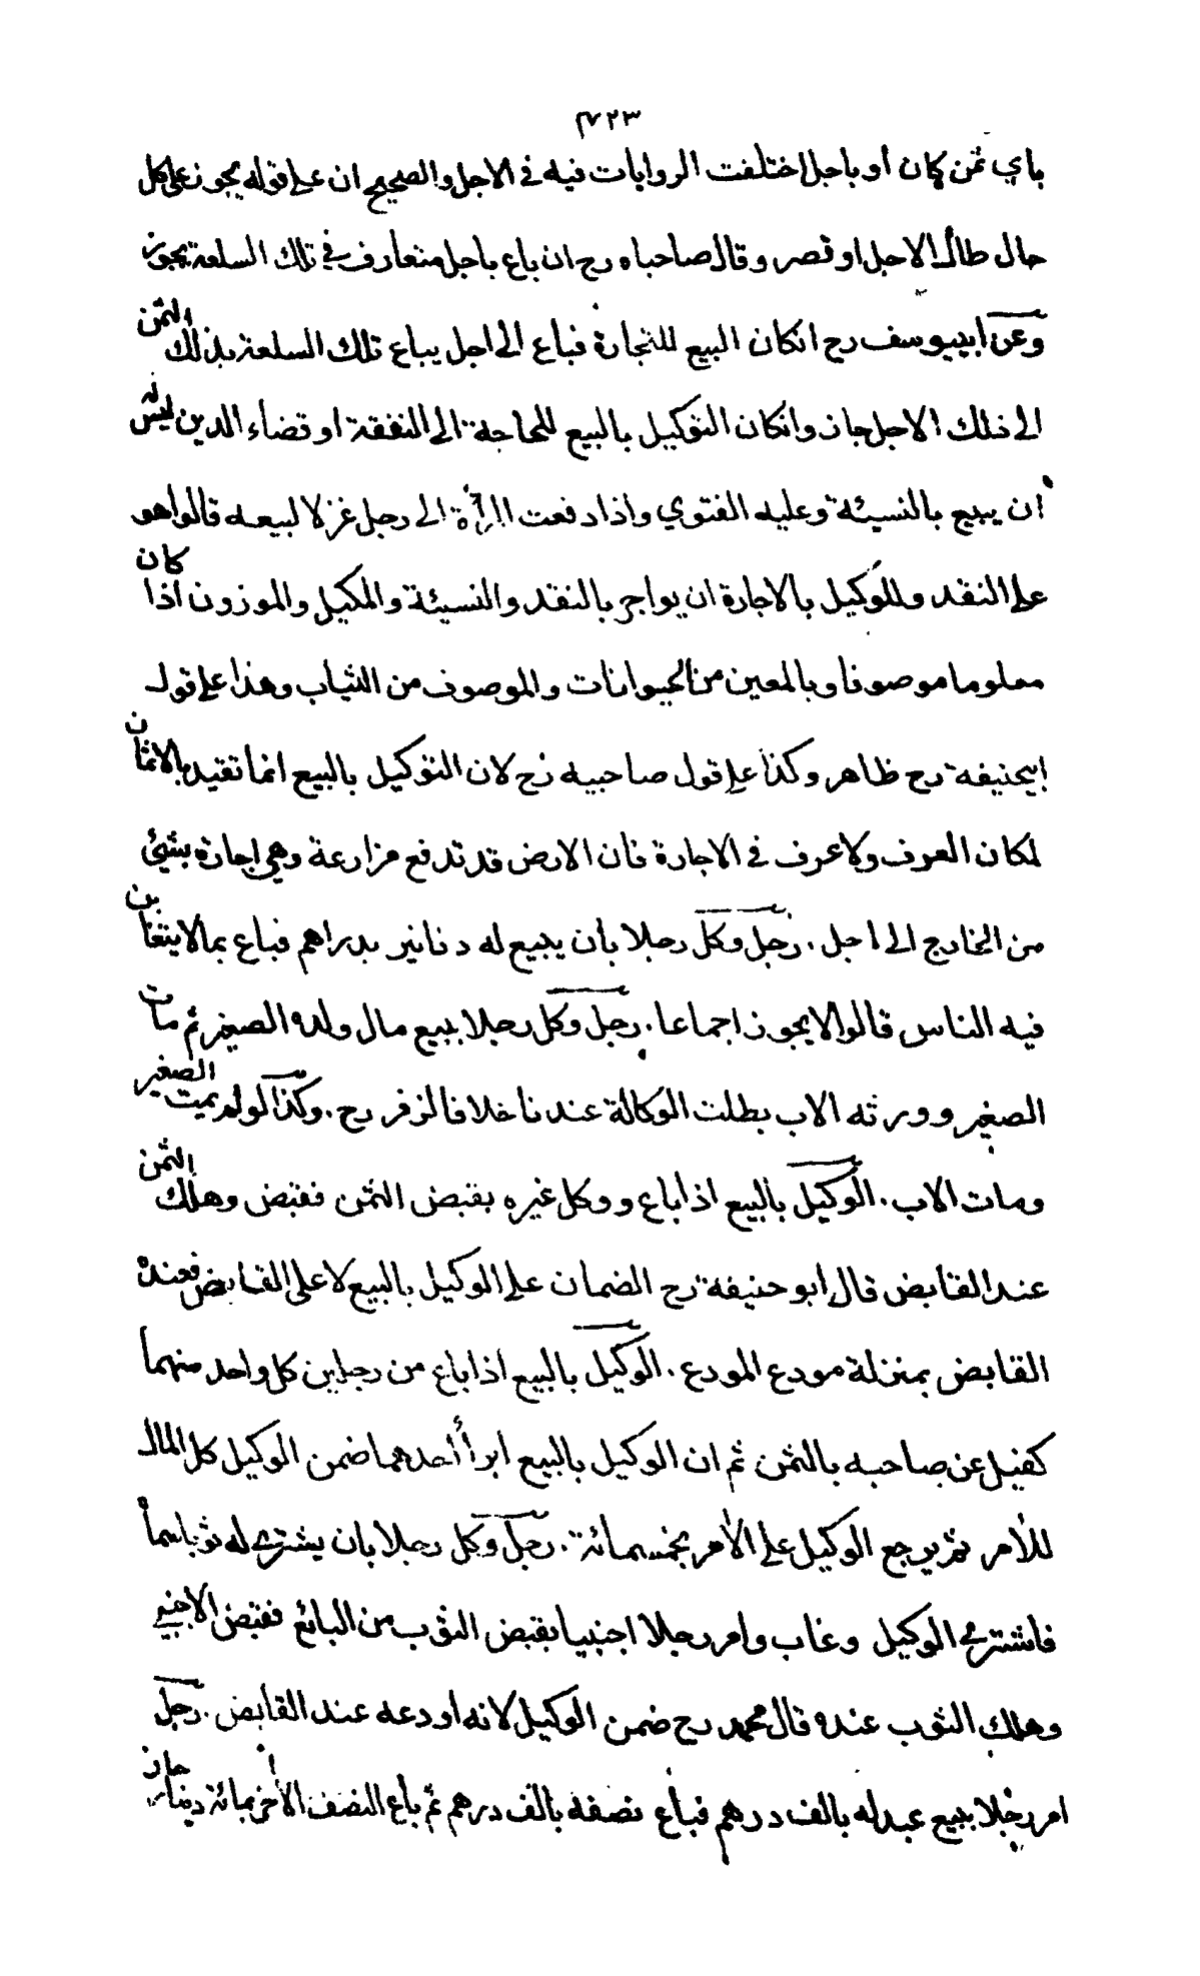 ٧٢٣
باي ثمن كان او باجل اختلفت الروايات فيه في الاجل والصحيح ان على قوله يجوز على كل
حال طال الاجل او قصر وقال صاحباه رح ان باع باجل متعارف في تلك السلعة يجوز
وعن ابييوسف رح انكان البيع للتجارة فباع الى اجل يباع تلك السلعة بذلك الثمن
الى ذلك الاجل جاز وانكان التوكيل بالبيع للحاجة الى النفقة او قضاء الدين ليس له
ان يبيع بالنسيئة وعليه الفتوي واذا دفعت المراة الى رجل غزلا لبيعه قالوا هو
على النقد وللوكيل بالاجارة ان يواجر بالنقد والنسيئة والمكيل والموزون اذا كان
معلوما موصوفا وبالمعين من الحيوانات والموصوف من الثياب وهذا على قول
ابيحنيفة رح ظاهر وكذا على قول صاحبيه رح لان التوكيل بالبيع انما تقيد بالاثمان
لمكان العرف ولا عرف في الاجارة فان الارض قد تدفع مزارعة وهي اجارة بشيئ
من الخارج الى اجل . رجل وكل رجلا بان يبيع له دنانير بدراهم فباع بما لا يتغابن
فيه الناس قالوا لا يجوز اجماعا . رجل وكل رجلا ببيع مال ولده الصغير ثم مات
الصغير وورثه الاب بطلت الوكالة عندنا خلافا لزفر رح . وكذا لو لم يمت الصغير
ومات الاب . الوكيل بالبيع اذا باع ووكل غيره بقبض الثمن فقبض وهلك الثمن
عند القابض قال ابو حنيفة رح الضمان على الوكيل بالبيع لا على القابض فعنده
القابض بمنزلة مودع المودع . الوكيل بالبيع اذا باع من رجلين كل واحد منهما
كفيل عن صاحبه بالثمن ثم ان الوكيل بالبيع ابرأ أحدهما ضمن الوكيل كل المال
للآمر ثم يرجع الوكيل على الآمر بخمسمائة . رجل وكل رجلا بان يشتري له ثوبا سماه
فاشترى الوكيل وغاب وامر رجلا اجنبيا بقبض الثوب من البائع فقبض الاجنبي
وهلك الثوب عنده قال محمد رح ضمن الوكيل لانه اودعه عند القابض . رجل
امر رجلا ببيع عبد له بالف درهم فباع نصفه بالف درهم ثم باع النصف الآخر بمائة دينار جاز